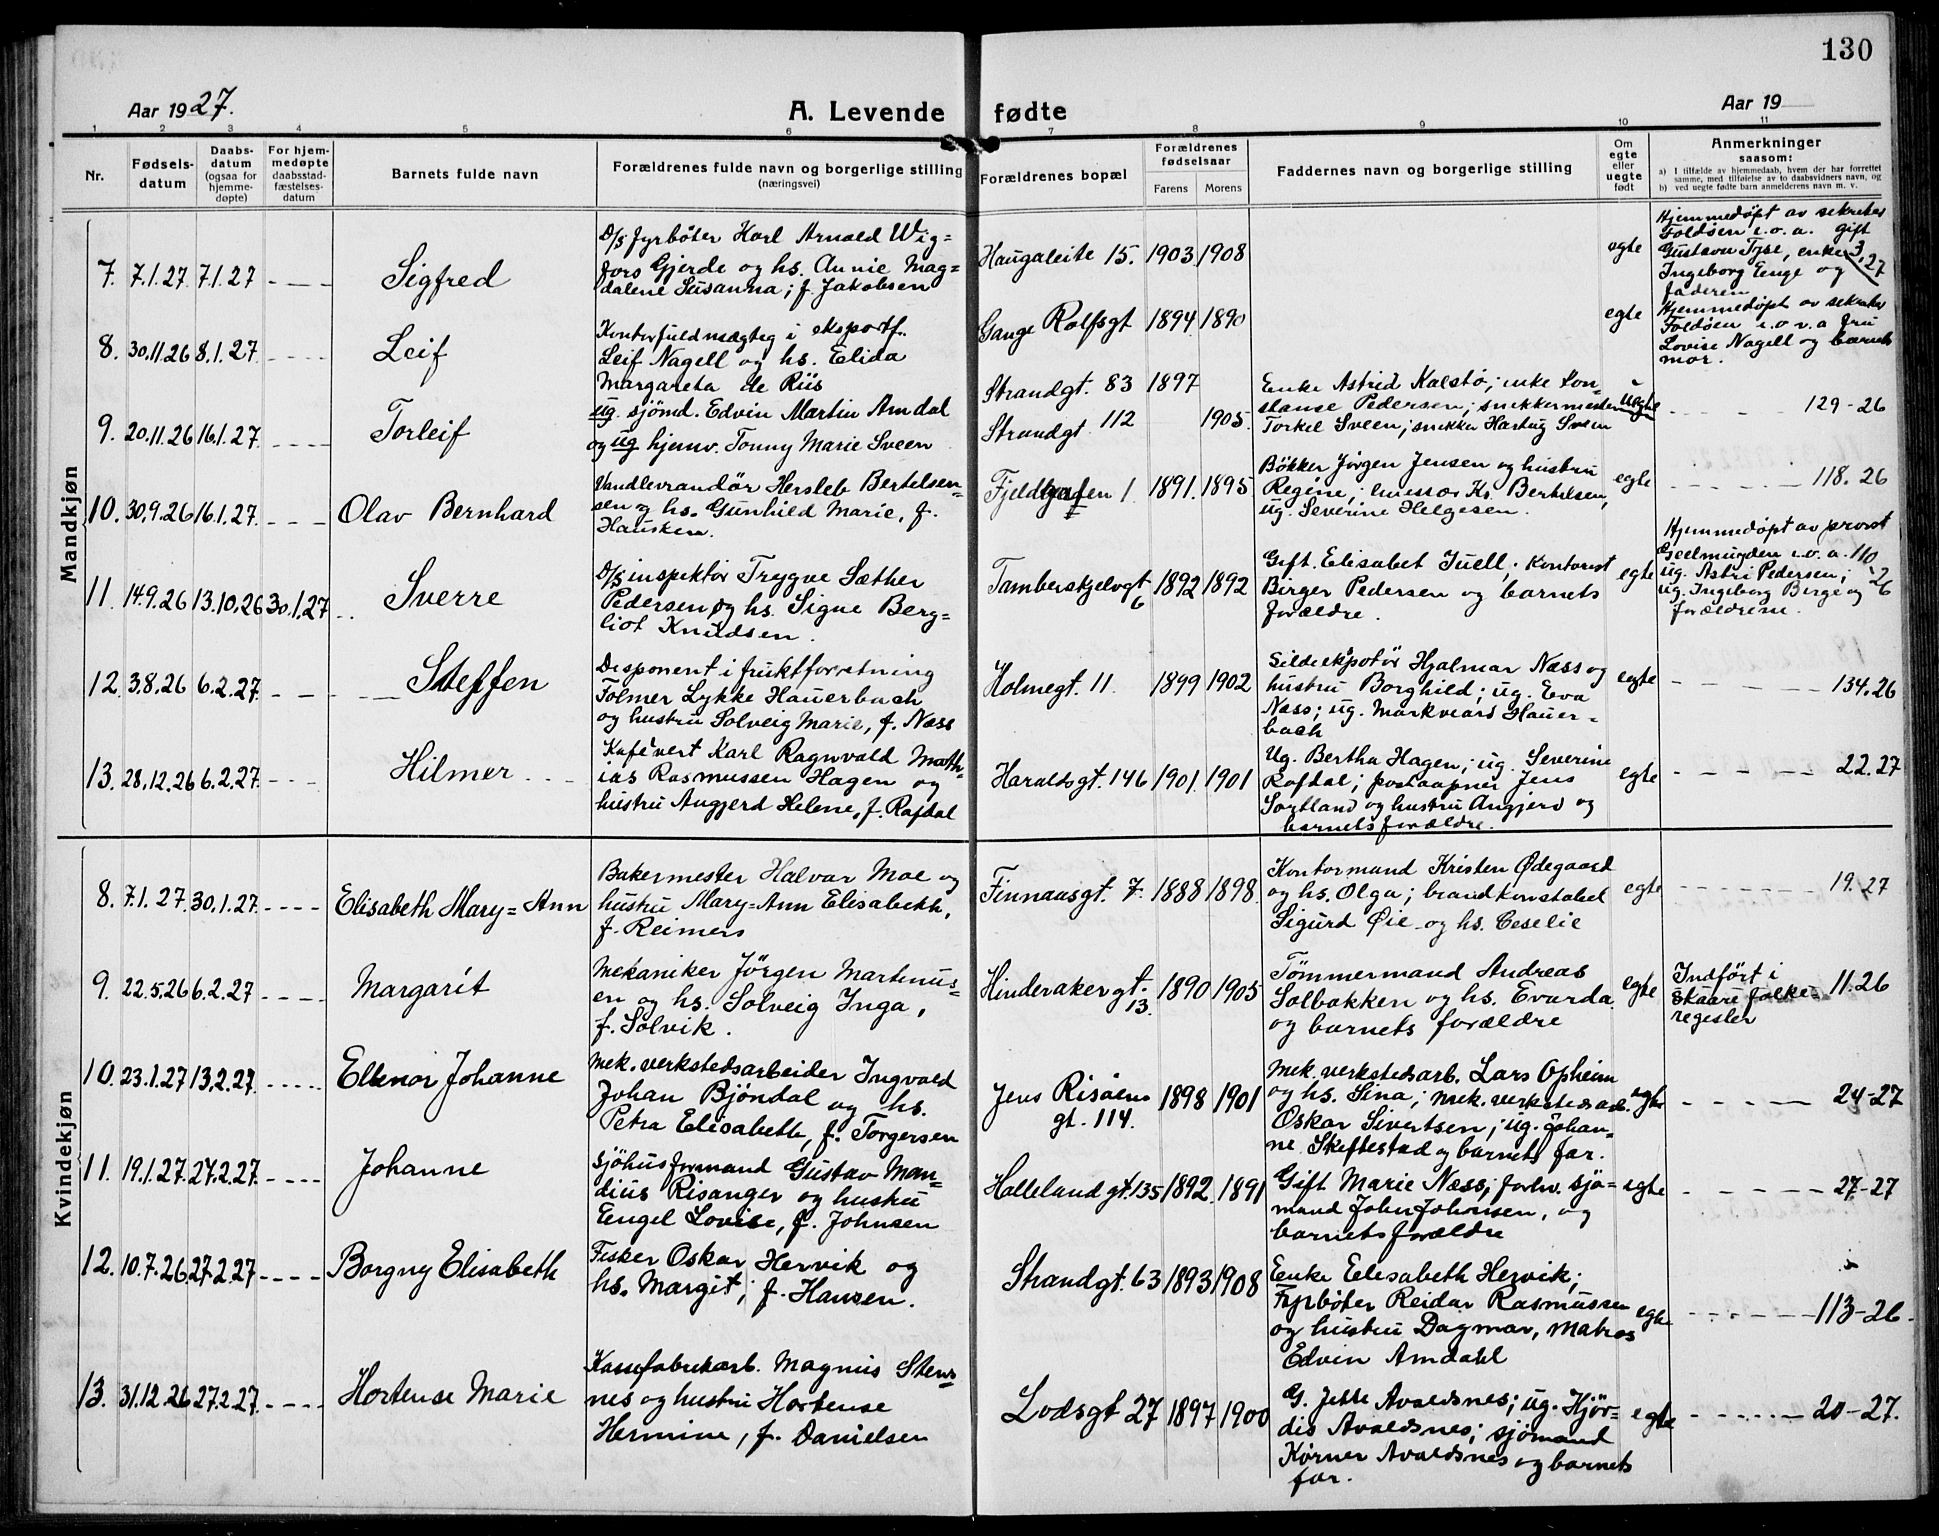 130
Aar 1927.
A. Levende fødte
Aar 19
1 2 3 4 5 6 7 8 9 10 11
Nr.
Fødsels-
datum
Daabs-
datum
(ogsaa for
hjemme-
døpte)
For hjem-
medøpte
daabsstad-
fæstelses-
datum
Barnets fulde navn
Forældrenes fulde navn og borgerlige stilling
(næringsvei)
Forældrenes bopæl
Forældrenes
fødselsaar
Farens Morens
Faddernes navn og borgerlige stilling
Om
egte
eller
uegte
født
Anmerkninger
saasom:
a) I tilfælde av hjemmedaab, hvem der har forrettet
samme, med tilføielse av to daabsvidners navn, og
b) ved uegte fødte barn anmelderens navn m. v.
Mandkjøn
7. 7.1.27 7.1.27 Sigfred
D/s fyrbøter Karl Arnold Wig=
fors Gjerde og hs. Annie Mag=
dalene Susanna; f. Jakobsen
Haugaleite 15. 1903 1908
egte
Hjemmedøpt av sekretær
Foldøen i.o.a. gift
Gustava Tyse, enke 3,27
Ingeborg Enge og
faderen
8. 30.11.26 8.1.27 Leif
Kontorfuldmægtig i eksportf.
Leif Nagell og hs. Elida
Margareta de Riis
Gange Rolfsgt 1894 1890
egte
Hjemmedøpt av sekretær
Foldøen i.o.v.a fru
Lovise Nagell og barnets
mor.
9. 20.11.26 16.1.27 Torleif
ug. sjömd. Edvin Martin Amdal
og ug hjemv. Tonny Marie Sveen
Strandgt. 83 1897
Strandgt 112 1905
Enke Astrid Kalstø; enke Kon=
stanse Pedersen; snekkermester
Torkel Sveen; snekker Hartvig Sveen
uegte
129-26
10. 30.9.26 16.1.27 Olav Bernhard
Vandleverandør Hersleb Bertelsen=
sen og hs. Gunhild Marie, f.
Hausken.
Fjeldgaten 1 1891. 1895
Bökker Jörgen Jensen og hustru
Regine; Kr. Bertelsen,
ug. Severine Helgesen.
egte
118.26
11. 14.9.26 13.10.26 30.1.27 Sverre
D/s inspektör Trygve Sæther
Pedersen og hs. Signe Berg=
liot Knudsen.
Tamberskjelvgt 6 1892 1892
Gift. Elisabet Juell; Kontorist
Birger Pedersen og barnets
forældre.
egte
Hjemmedøpt av provst
Geelmuyden i.o.a. 110-26
ug. Astri Pedersen;
ug. Ingeborg Berge og
forældrene.
12. 3.8.26 6.2.27 Steffen
Disponent i fruktforretning
Folmer Lykke Hauerbach
og hustru Solveig Marie, f. Næss
Holmegt. 11. 1899 1902
Sildeekspotör Hjalmar Næss og
hustru Borghild; ug. Eva
Næss; ug. Markveard Hauer-
bach
egte
134.26
13. 28.12.26 6.2.27 Hilmer
Kafévert Karl Ragnvald Math=
ias Rasmussen Hagen og
hustru Angjerd Helene, f. Rafdal
Haraldsgt. 146 1901. 1901
Ug. Bertha Hagen; ug. Severine
Rafdal; postaapner Jens
Sortland og hustru Angjerd og
barnets forældre.
egte
22.27
Kvindekjøn
8. 7.1.27 30.1.27 Elisabeth Mary=Ann
Bakermester Halvar Moe og
hustru Mary=Ann Elisabeth,
f. Reimers
Finnaasgt. 7. 1888 1898
Kontormand Kristen Ødegaard
og hs. Olga; brandkonstabel
Sigurd Øie og hs. Ceselie
egte
19.27
9. 22.5.26 6.2.27 Margarit
Mekaniker Jörgen Martinus=
en og hs. Solveig Inga,
f. Solvik.
Hinderakergt. 13. 1890 1905
Tömmermand Andreas
Solbakken og hs. Evarda
og barnets forældre
egte
Indfört i
Skaare folke=
register
11.26
10. 23.1.27 13.2.27 Ellenor Johanne
Mek. verkstedsarbeider Ingvald
Johan Bjöndal og hs.
Petra Elisabeth, f. Torgersen
Jens Risöens
gt. 114. 1898 1901
Mek. verkstedsarb. Lars Opheim
og hs. Sina; mek. verkstedsarb.
Oskar Sivertsen; ug. Johan=
ne Skeftestad og barnets far.
egte
24-27
11. 19.1.27. 27.2.27 Johanne
Sjöhusformand Gustav Man=
dius Risanger og hustru
Engel Lovise, f. Johnsen
Hallelandgt. 135 1892. 1891
Gift Marie Næss; forhv. sjö=
mand John Johnsen, og
barnets forældre
egte
27-27
12. 10.7.26 27.2.27 Borgny Elisabeth
Fisker Oskar Hervik og
hs. Margit; f. Hansen.
Strandgt. 63 1893 1908
Enke Elisabeth Hervik;
Fyrböter Reidar Rasmussen
og hustru Dagmar, Matros
Edvin Amdahl
egte
113-26.
13. 31.12.26 27.2.27 Hortense Marie
Kassefabrikarb. Magnus Stens=
nes og hustru Hortense
Hermine, f. Danielsen
Lodsgt 27 1897 1900
G. Jette Avaldsnes; ug. Hjör=
dis Avaldsnes; sjömand
Körner Avaldsnes og barnets
far.
egte
20-27.